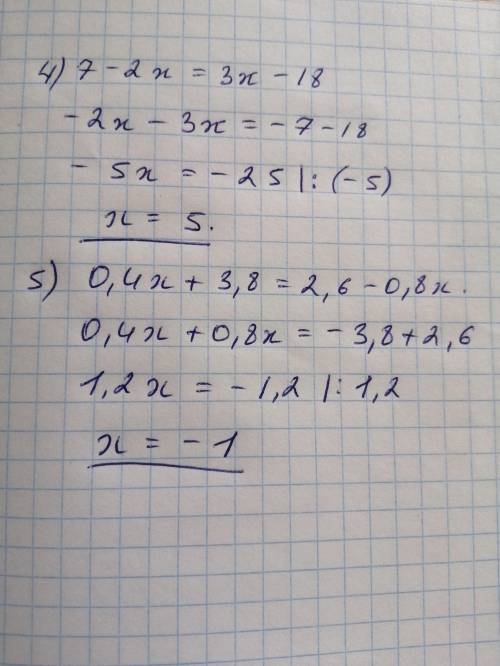 4) 7 - 2x = 3x - 18
- 2x - 3x = - 7 - 18
- 5x = - 25 |: (- 5)
x = 5.
5) 0,4x + 3,8 = 2,6 - 0,8x.
0,4x + 0,8x = - 3,8 + 2,6
1,2x = - 1,2 |: 1,2
x = - 1